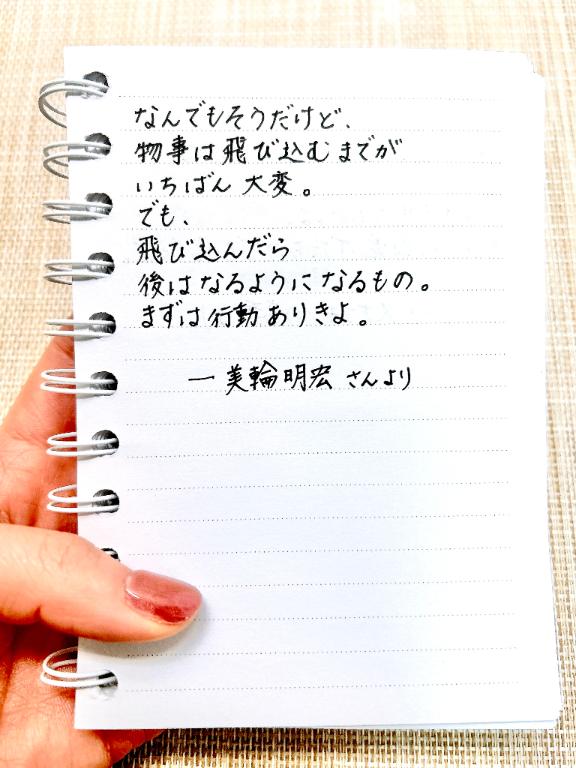 なんでもそうだけど、
物事は飛び込むまでが
いちばん大変。
でも、
飛び込んだら
後はなるようになるもの。
まずは行動ありきよ。
― 美輪明宏さんより